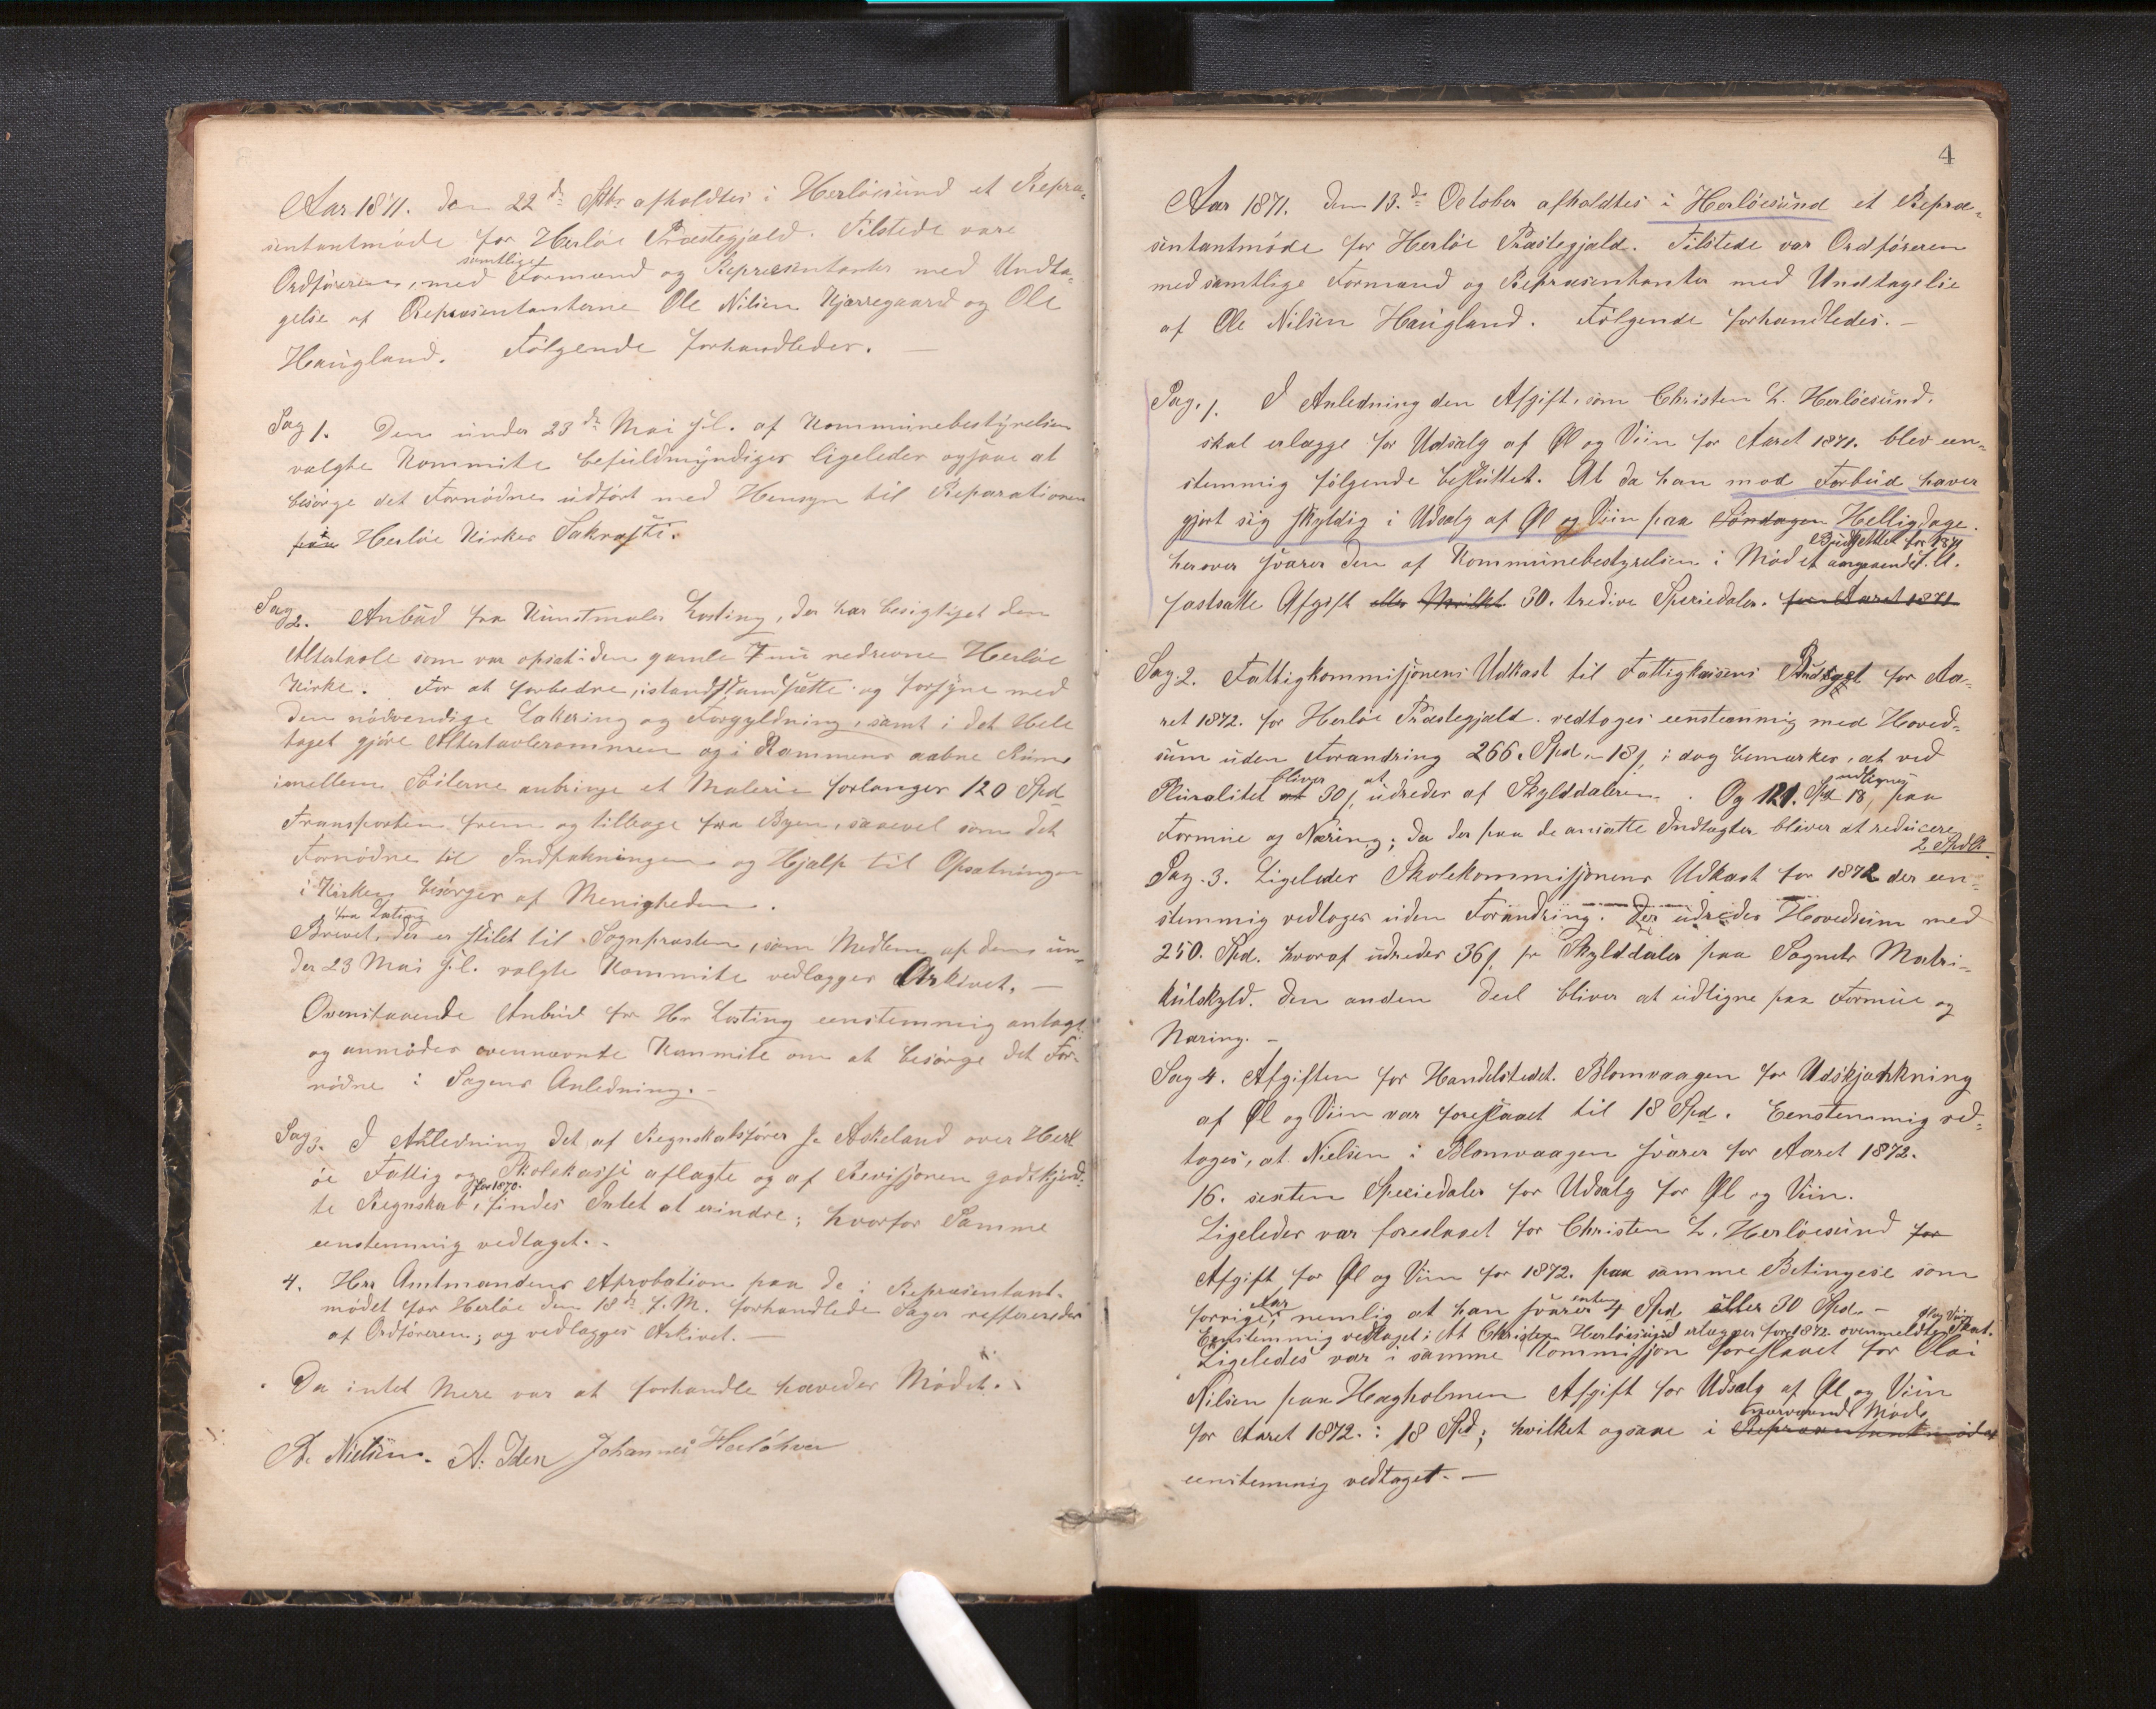 Aar 1871. den 22de Sptbr afholdtes i Herlöesund et Repræ-
sentantmöde for Herlöe Præstegjæld. Tilstede vare
Ordföreren, med samtlige Formænd og Repræsentanter med Undta-
gelse af Repræsentanterne Ole Nilsen Kjærregaard og Ole
Haugland. Fölgende forhandledes. —
Sag 1. Den under 23de Mai f.l. af Kommunebestyrelsen
valgte Kommite befuldmyndiges ligeledes ogsaa at
besörge det Fornödne udfört med Hensyn til Reparationen
Herlöe Kirkes Sakrasti.
Sag 2. Anbud fra Kunstmaler Losting, der har besigtiget den
Altertavle som var opsat i den gamle nu nedrevne Herlöe
Kirke. For at forbedre, istandsætte og forsyne med
den nödvendige Lakering og Forgyldning, samt i det Hele
taget gjöre Altertavlerammen og i Rammens aabne Rum
imellem Söilerne anbringe et Malerie forlanger 120 Spd
Transporten frem og tilbage fra Byen, saavel som det
Fornödne til Indpakningen og Hjælp til Opsætningen
i Kirken besörges af Menigheden.
Brevet, fra Losting der er stilet til Sognpræsten, som Medlem af den un-
der 23 Mai f.l. valgte Kommite vedlægges Arkivet. —
Ovenstaaende Anbud fra Hr Losting eenstemmig antaget
og anmodes ovennævnte Kommite om at besörge det For-
nödne i Sagens Anledning. —
Sag 3. I Anledning det af Regnskabsförer Askeland over Herl
öe Fattig og Skolekasse aflagte og af Revisjonen godtkjend-
te Regnskab, for 1870. findes Intet at erindre; hvorfor Samme
eenstemmig vedtaget. -
4. Herr Amtmandens Aprobation paa de i Repræsentant-
mödet for Herlöe den 18de f.M. forhandlede Sager reffereredes
af Ordföreren; og vedlægges Arkivet. —
Da intet Mere var at forhandle hævedes Mödet.
Nielsen. A. Iden Johannes Herlöhver
4
Aar 1871. den 13.de October afholdtes i Herlöesund et Repræ-
sentantmöde for Herlöe Præstegjæld. Tilstede var Ordföreren
med samtlige Formænd og Repræsentanter med Undtagelse
af Ole Nilsen Haugland. Fölgende forhandledes. —
Sag. 1. I Anledning den Afgift, som Christen L. Herlöesund.
skal erlægge for Udsalg af Øl og Viin for Aaret 1871. blev een-
stemmig fölgende besluttet. At da han mod Forbud haver
gjort sig skyldig i Udsalg af Øl og Viin paa Söndagen Helligdage.
herover svarer den af Kommunebestyrelsen i Mödet angaaende Budgettet for 1871
fastsatte Afgift eller Hvilket 30. tredive Speciedaler. for Aaret 1871
Sag. 2. Fattigkommissjonens Udkast til Fattigkassens Budget for Aa-
ret 1872. for Herlöe Præstegjæld. vedtoges eenstemmig med Hoved-
sum uden Forandring 266. Spd. - 18 ſ, i dog bemærkes, at ved
Pluralitet bliver at 30 ſ. udredes af Skylddaleren. Og 121. Spd 18, udlignes paa
Formue og Næring; da der paa de ansatte Indtægter bliver at reducere
2 Spdlr.
Sag. 3. Ligeledes Skolekommissjonens Udkast for 1872 der een-
stemmig vedtages uden Forandring. Der udredes Hovedsum med
250. Spd. hvoraf udredes 36 ſ. pr Skylddaler paa Sognets Matri-
kulskyld. den anden Deel bliver at udligne paa Formue og
Næring. —
Sag 4. Afgiften for Handelstedet. Blomvaagen for Udskjænkning
af Øl og Viin var foreslaaet til 18 Spd. Eenstemmig ved-
tages, at Nielsen i Blomvaagen svarer for Aaret 1872.
16. sexten Speciedaler for Udsalg for Øl og Viin.
Ligeledes var foreslaaet for Christen L. Herlöesund for
Afgift for Øl og Viin for 1872. paa samme Betingelse som
forrige Aar, nemlig at han svarer enten 4 Spd eller 30 Spd. —
Eenstemmig vedtaget; At Christen Herlöesund erlægger for 1872. ovenmeldte Øl og Viin Skat.
Ligeledes var i samme Kommissjon foreslaaet for Olai
Nilsen paa Hagholmen Afgift for Udsalg af Øl og Viin
for Aaret 1872.: 18 Spd; hvilket ogsaa i Repræsentantmödet nærværende Möde
eenstemmig vedtaget. —